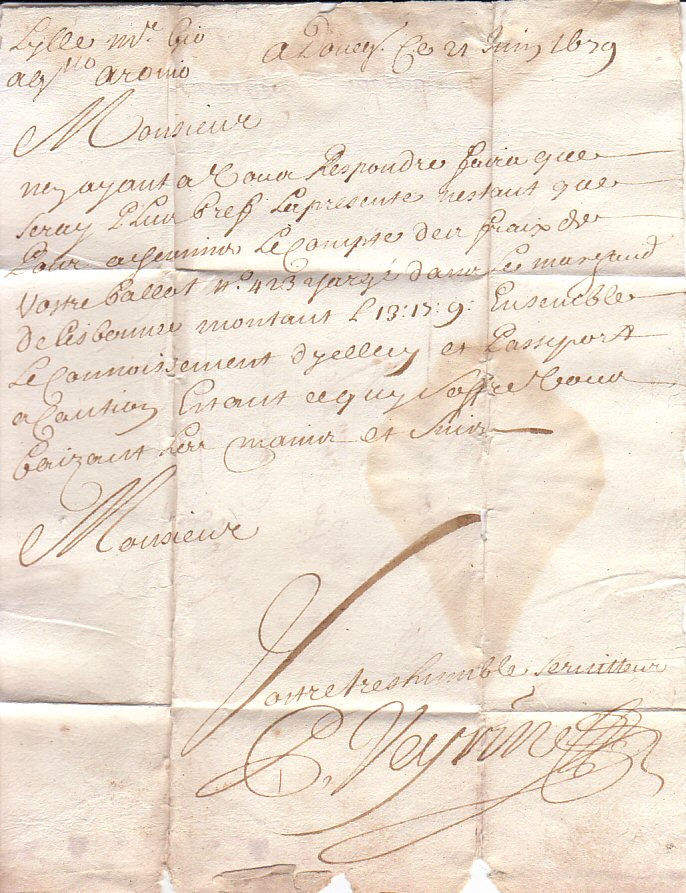 Lylle Mr. Gio
A Doüay Ce 21 Juin 1679
agno aronio
Monsieur
n'ayant a Vous Respondre faira que
seray Plus bref La presente n'estant que
Pour a Le Compte des fraix de
Vostre ballot no. 423 dans Le marchand
de Lisbonne montant L 13:17:9: Ensemble
Le Connoissement d'yelluy et Passeport
a Caution Estant ce quy s'offre Vous
baizant Les mains et Suis
Monsieur
Vostre tres humble serviteur